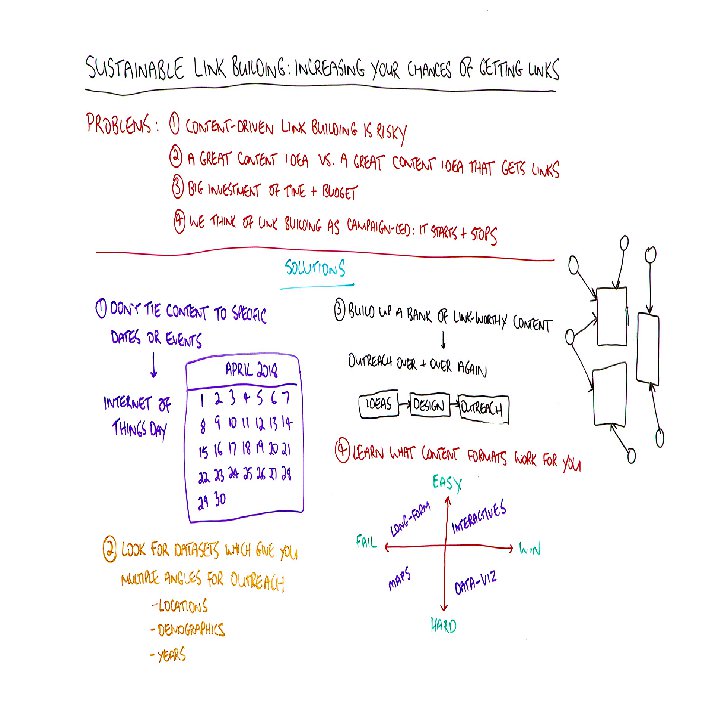 SUSTAINABLE LINK BUILDING: INCREASING YOUR CHANCES OF GETTING LINKS
PROBLEMS: ① CONTENT-DRIVEN LINK BUILDING IS RISKY
② A GREAT CONTENT IDEA VS. A GREAT CONTENT IDEA THAT GETS LINKS
③ BIG INVESTMENT OF TIME + BUDGET
④ WE THINK OF LINK BUILDING AS CAMPAIGN-LED: IT STARTS + STOPS
SOLUTIONS
① DON'T TIE CONTENT TO SPECIFIC
DATES OR EVENTS
INTERNET OF
THINGS DAY
APRIL 2018
1 2 3 4 5 6 7
8 9 10 11 12 13 14
15 16 17 18 19 20 21
22 23 24 25 26 27 28
29 30
② LOOK FOR DATASETS WHICH GIVE YOU
MULTIPLE ANGLES FOR OUTREACH
-LOCATIONS
-DEMOGRAPHICS
-YEARS
③ BUILD UP A BANK OF LINK-WORTHY CONTENT
OUTREACH OVER + OVER AGAIN
IDEAS DESIGN OUTREACH
④ LEARN WHAT CONTENT FORMATS WORK FOR YOU
EASY
LONG-FORM INTERACTIVES
FAIL WIN
MAPS DATA-VIZ
HARD